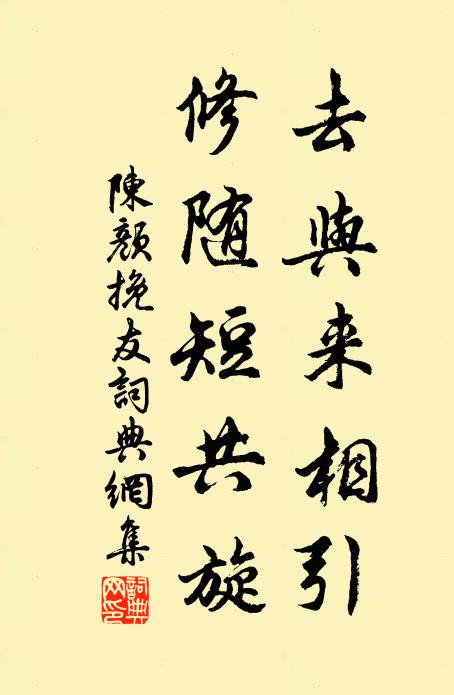 去與来相引
修随短共旋
陳顔挽友詞典網集
詞典網印